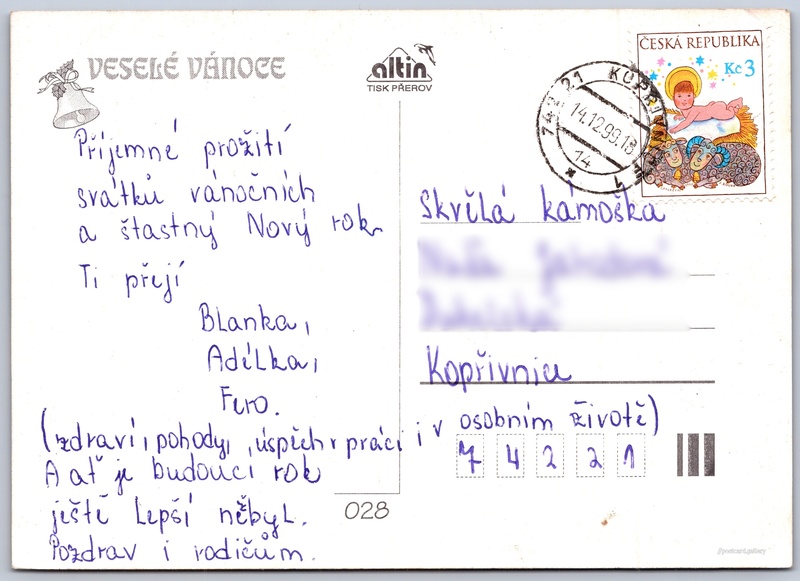 VESELÉ VÁNOCE
altin
TISK PŘEROV
ČESKÁ REPUBLIKA
Kč 3
742 21 KOPŘIVNICE 1
14.12.99.18
14
Příjemné prožití
svátků vánočních
a štastný Nový rok
Ti přejí
Blanka,
Adélka,
Fero.
(zdraví, pohody, úspěch v práci i v osobním životě)
A ať je budoucí rok
ještě lepší něbyl.
Pozdrav i rodičům.
Skvělá kámoška
Kopřivnice
7 4 2 2 1
028